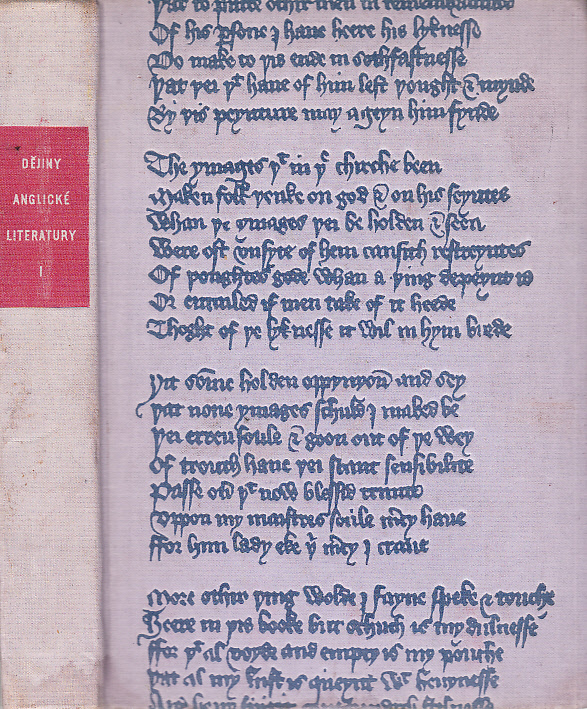 DĚJINY
ANGLICKÉ
LITERATURY
I
þat to putte othir men in remembraunce
Of his ꝑsone I haue heere his lyknesse
Do make to þis ende in sothfastnesse
þat þei þᵗ haue of him left þought & mynde
By þis peynture may ageyn him fynde
The ymages þᵗ in þᵉ chirche been
Maken folk þenke on god & on his seyntes
Whan þe ymages þei be holden & seen
Were oft vnsyte of hem causith restreyntes
Of þoughtes gode whan a þing depeynt is
Or entailed if men take of it heede
Thoght of þe lyknesse it wil in hym brede
Yit some holden oppynyoun and sey
þat none ymages schuld I maked be
þei erren foule & goon out of þe wey
Of trouth haue þei scant sensibilite
Passe ouer þᵗ now blessid trinite
Vppon my maistres soule mcy haue
ffor him lady eke þi mcy I craue
More othir þing wolde I fayne speke & touche
Heere in þis booke but schuch is my dulnesse
ffor þᵗ al voyde and empty is my pouche
þat al my lust is queynt wᵗ heuynesse